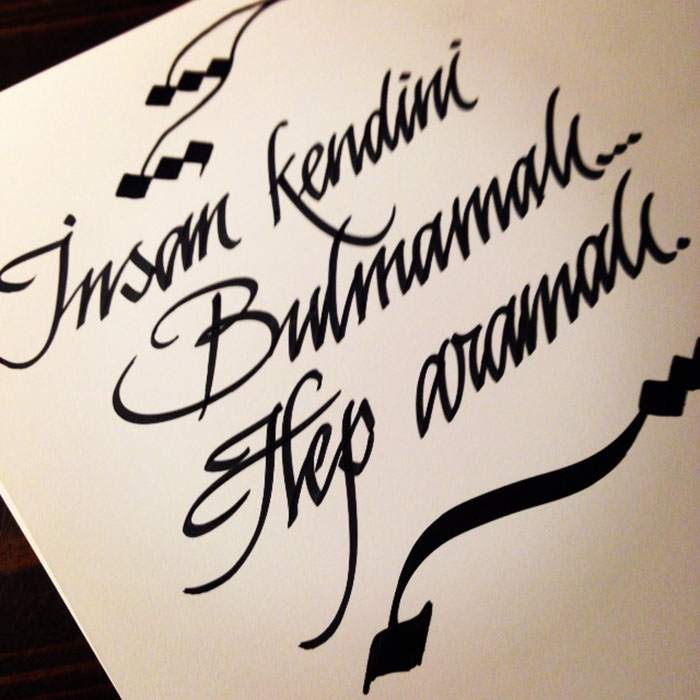 İnsan kendini
Bulmamalı...
Hep aramalı.